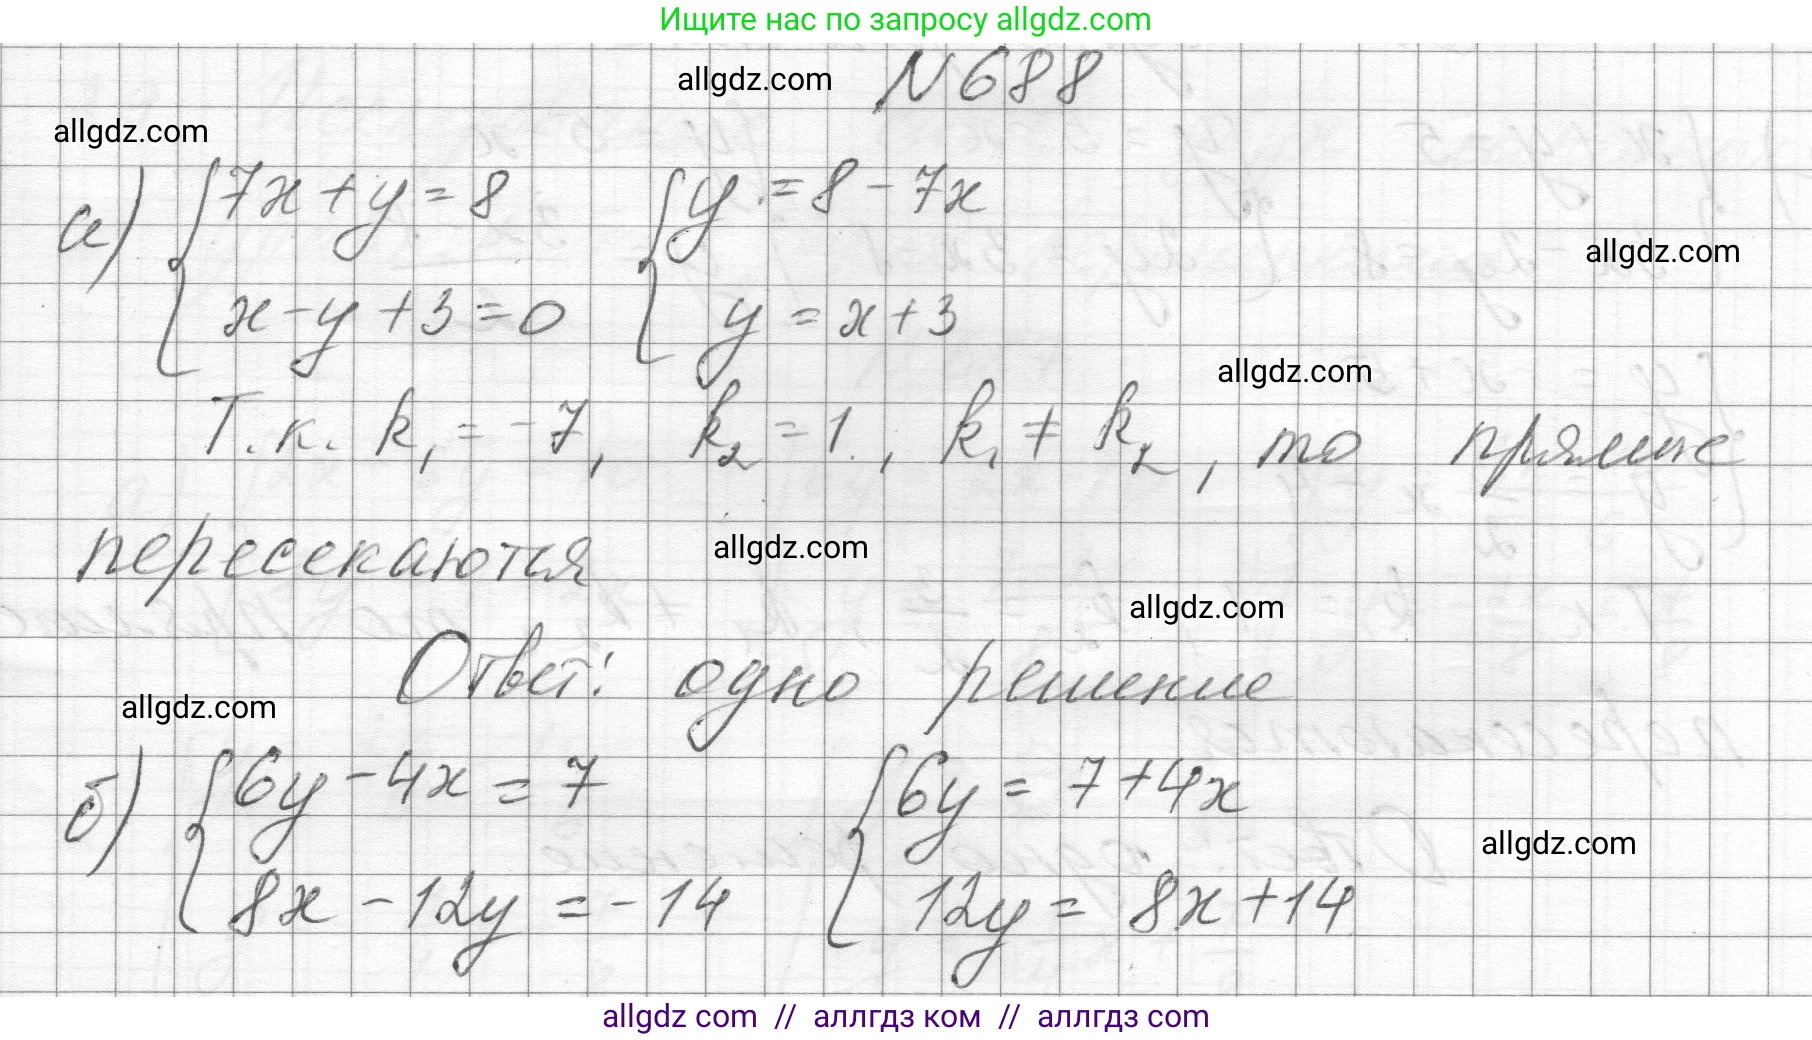 Ищите нас по запросу allgdz.com
allgdz.com № 688
allgdz.com
а) { 7x + y = 8 { y = 8 - 7x
allgdz.com
x - y + 3 = 0 y = x + 3
allgdz.com
Т.к. k₁ = -7, k₂ = 1, k₁ ≠ k₂, то прямые
пересекаются allgdz.com
allgdz.com
Ответ: одно решение
allgdz.com
б) { 6y - 4x = 7 { 6y = 7 + 4x
allgdz.com
8x - 12y = -14 12y = 8x + 14
allgdz com // аллгдз ком // аллгдз com